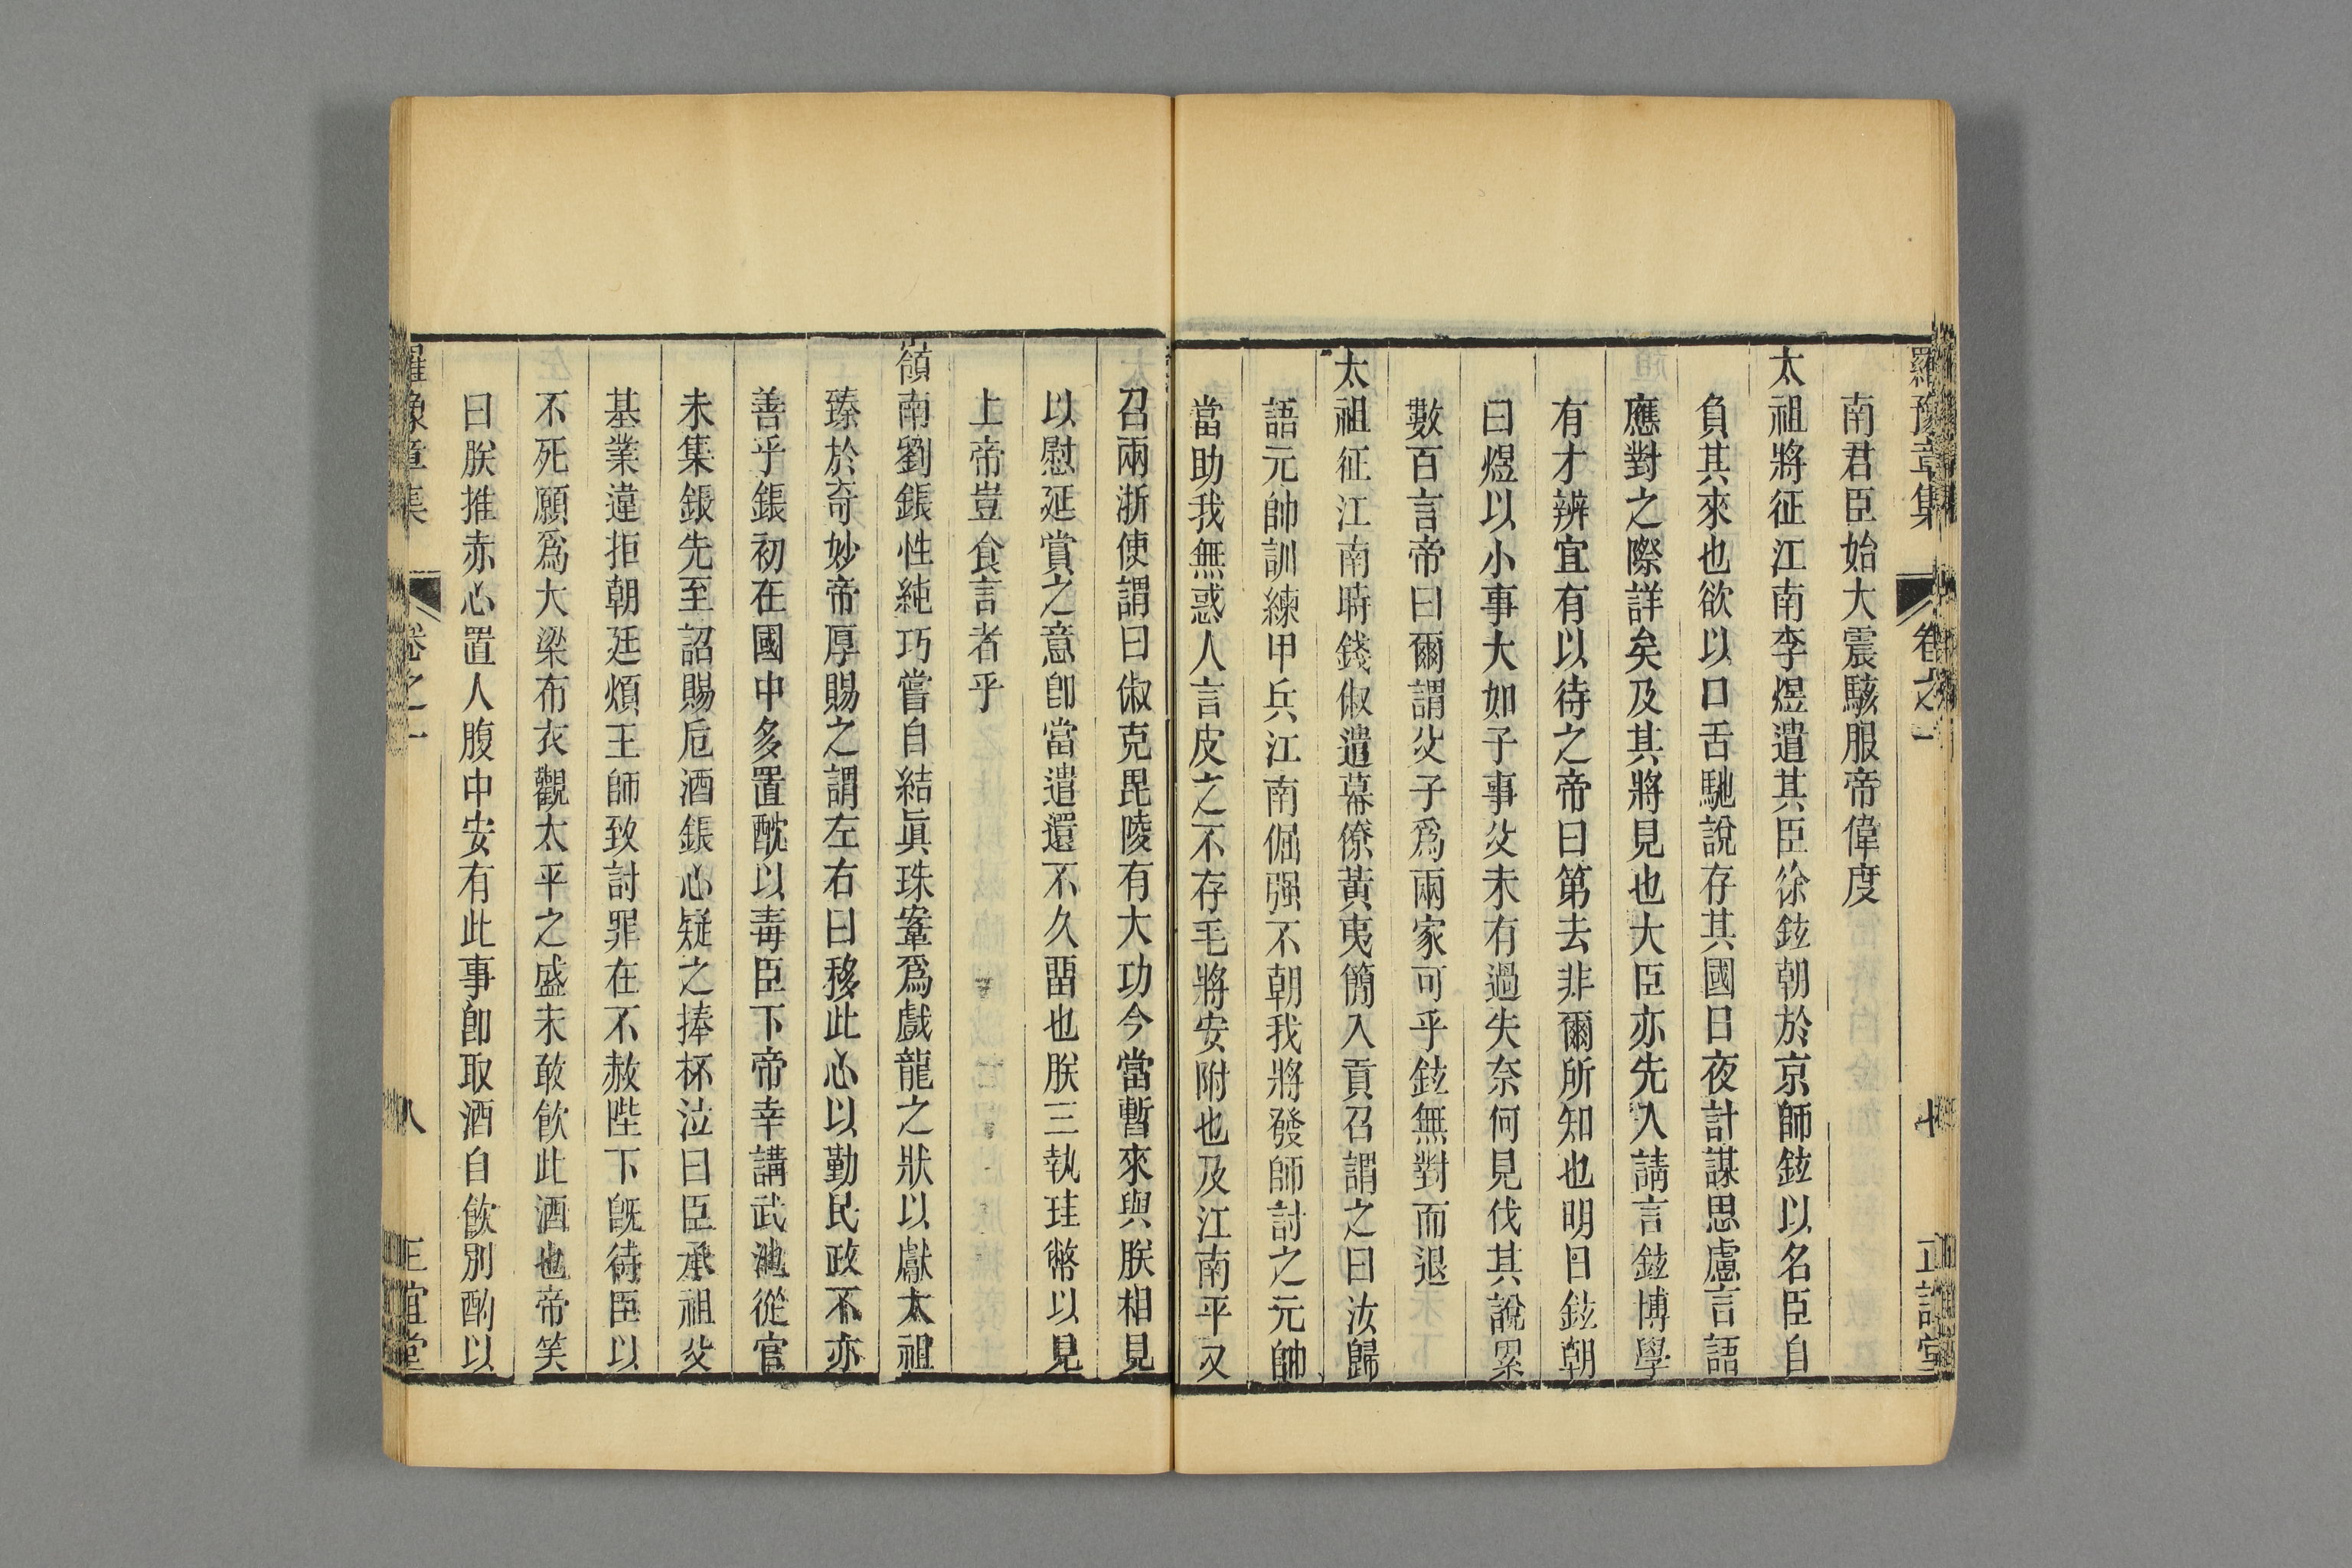 羅豫章集 卷之一 七 正誼堂
南君臣始大震駭服帝偉度
太祖將征江南李煜遣其臣徐鉉朝於京師鉉以名臣自
負其來也欲以口舌馳說存其國日夜計謀思慮言語
應對之際詳矣及其將見也大臣亦先入請言鉉博學
有才辨宜有以待之帝曰第去非爾所知也明日鉉朝
曰煜以小事大如子事父未有過失奈何見伐其說累
數百言帝曰爾謂父子爲兩家可乎鉉無對而退
太祖征江南時錢俶遣幕僚黃夷簡入貢召謂之曰汝歸
語元帥訓練甲兵江南倔强不朝我將發師討之元帥
當助我無惑人言皮之不存毛將安附也及江南平又
召兩浙使謂曰俶克毘陵有大功今當暫來與朕相見
以慰延賞之意卽當遣還不久畱也朕三執珪幣以見
上帝豈食言者乎
嶺南劉鋹性純巧嘗自結眞珠鞌爲戲龍之狀以獻太祖
臻於奇妙帝厚賜之謂左右曰移此心以勤民政不亦
善乎鋹初在國中多置酖以毒臣下帝幸講武池從官
未集鋹先至詔賜卮酒鋹心疑之捧杯泣曰臣承祖父
基業違拒朝廷煩王師致討罪在不赦陛下旣待臣以
不死願爲大梁布衣觀太平之盛未敢飮此酒也帝笑
曰朕推赤心置人腹中安有此事卽取酒自飮別酌以
羅豫章集 卷之一 八 正誼堂